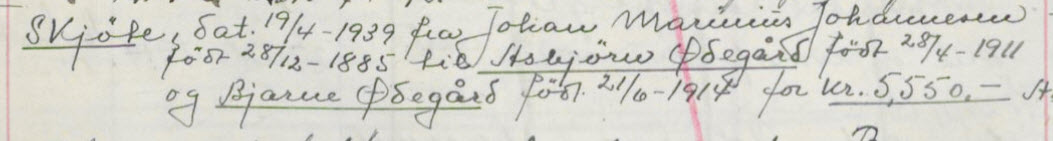 Skjöte, dat. 19/4-1939 fra Johan Marinius Johannesen
född 28/12-1885 til Asbjörn Ødegård född 28/4-1911
og Bjarne Ødegård född. 21/6-1914 for kr. 5,550,-